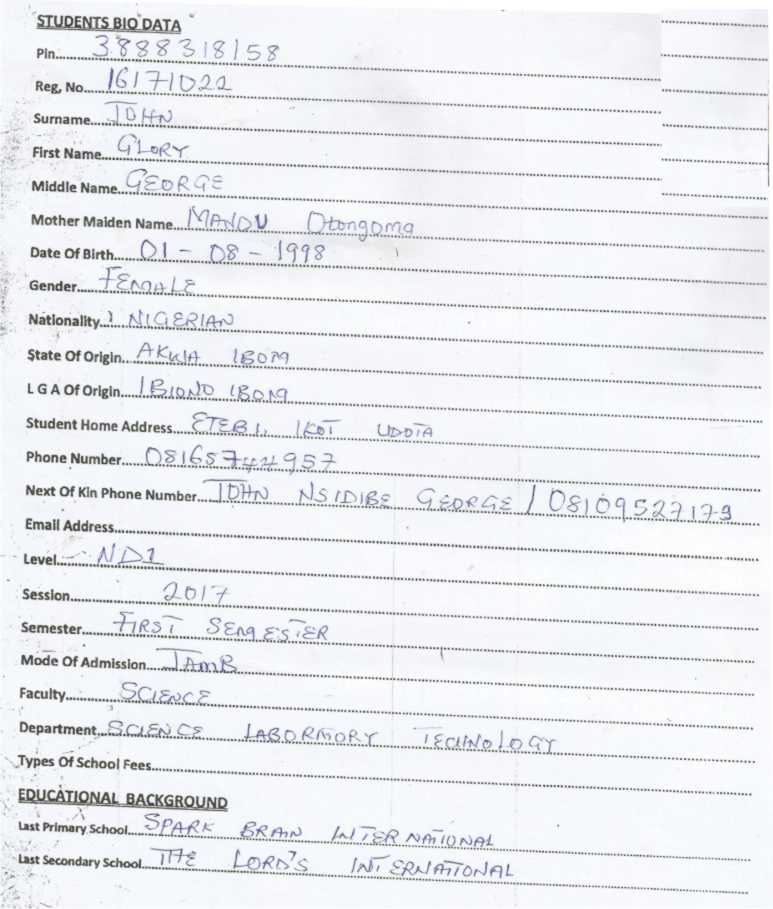 STUDENTS BIO DATA
Pin 3888318158
Reg, No 16171022
Surname JOHN
First Name GLORY
Middle Name GEORGE
Mother Maiden Name MANDU Otongoma
Date Of Birth 01 - 08 - 1998
Gender FEMALE
Nationality NIGERIAN
State Of Origin AKWA IBOM
L G A Of Origin IBIONO IBOM
Student Home Address ETEBI, IKOT UDOTA
Phone Number 08165744957
Next Of Kin Phone Number JOHN NSIDIBE GEORGE / 08109527179
Email Address
Level ND1
Session 2017
Semester FIRST SEMESTER
Mode Of Admission JAMB
Faculty SCIENCE
Department SCIENCE LABORATORY TECHNOLOGY
Types Of School Fees
EDUCATIONAL BACKGROUND
Last Primary School SPARK BRAIN INTERNATIONAL
Last Secondary School THE LORD'S INTERNATIONAL